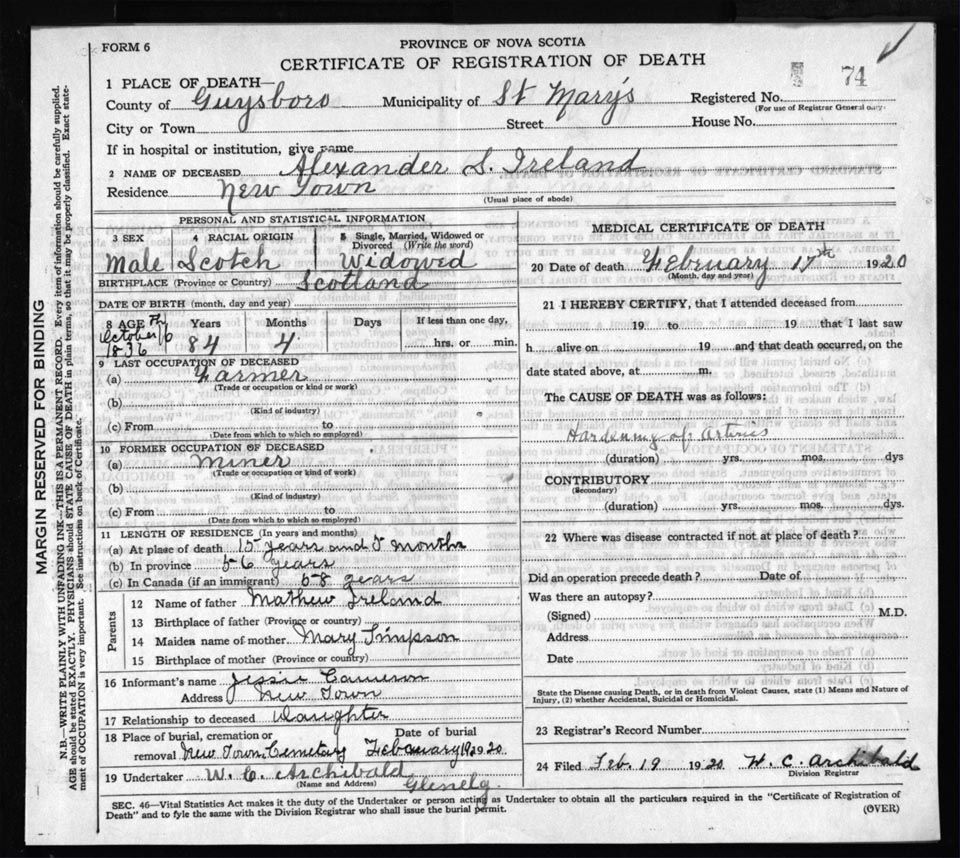 FORM 6
PROVINCE OF NOVA SCOTIA
CERTIFICATE OF REGISTRATION OF DEATH
74
1 PLACE OF DEATH—
County of Guysboro Municipality of St Mary's Registered No.
(For use of Registrar General only.
City or Town Street House No.
If in hospital or institution, give name
2 NAME OF DECEASED Alexander S. Ireland
Residence New Town
(Usual place of abode)
PERSONAL AND STATISTICAL INFORMATION
3 SEX 4 RACIAL ORIGIN 5 Single, Married, Widowed or Divorced (Write the word)
Male Scotch Widowed
BIRTHPLACE (Province or Country) Scotland
DATE OF BIRTH (month, day and year)
8 AGE Years Months Days If less than one day,
October 1836 84 4 hrs. or min.
9 LAST OCCUPATION OF DECEASED
(a) Farmer
(Trade or occupation or kind of work)
(b)
(Kind of industry)
(c) From to
(Date from which to which so employed)
10 FORMER OCCUPATION OF DECEASED
(a) Miner
(Trade or occupation or kind of work)
(b)
(Kind of industry)
(c) From to
(Date from which to which so employed)
11 LENGTH OF RESIDENCE (In years and months)
(a) At place of death 15 years and 5 months
(b) In province 56 years
(c) In Canada (if an immigrant) 58 years
Parents
12 Name of father Mathew Ireland
13 Birthplace of father (Province or country)
14 Maiden name of mother Mary Simpson
15 Birthplace of mother (Province or country)
16 Informant's name Jessie Cameron
Address New Town
17 Relationship to deceased Daughter
18 Place of burial, cremation or removal Date of burial
New Town Cemetary Febuary 19 1920
19 Undertaker W. C. Archibald
(Name and Address) Glenelg
MEDICAL CERTIFICATE OF DEATH
20 Date of death Febuary 17th 1920
(Month, day and year)
21 I HEREBY CERTIFY, that I attended deceased from
19 to 19 that I last saw
h alive on 19 and that death occurred, on the
date stated above, at m.
The CAUSE OF DEATH was as follows:
Hardening of Arteries
(duration) yrs. mos. dys
CONTRIBUTORY
(Secondary)
(duration) yrs. mos. dys.
22 Where was disease contracted if not at place of death?
Did an operation precede death? Date of
Was there an autopsy?
(Signed) M.D.
Address
Date
State the Disease causing Death, or in death from Violent Causes, state (1) Means and Nature of
Injury, (2) whether Accidental, Suicidal or Homicidal.
23 Registrar's Record Number
24 Filed Feb. 19 1920 W. C. Archibald
Division Registrar
SEC. 46—Vital Statistics Act makes it the duty of the Undertaker or person acting as Undertaker to obtain all the particulars required in the "Certificate of Registration of
Death" and to fyle the same with the Division Registrar who shall issue the burial permit.
(OVER)
MARGIN RESERVED FOR BINDING
N.B.—WRITE PLAINLY WITH UNFADING INK—THIS IS A PERMANENT RECORD. Every item of information should be carefully supplied.
AGE should be stated EXACTLY. PHYSICIANS should STATE CAUSE OF DEATH in plain terms, so that it may be properly classified. Exact statement
of OCCUPATION is very important. See instructions on back of Certificate.